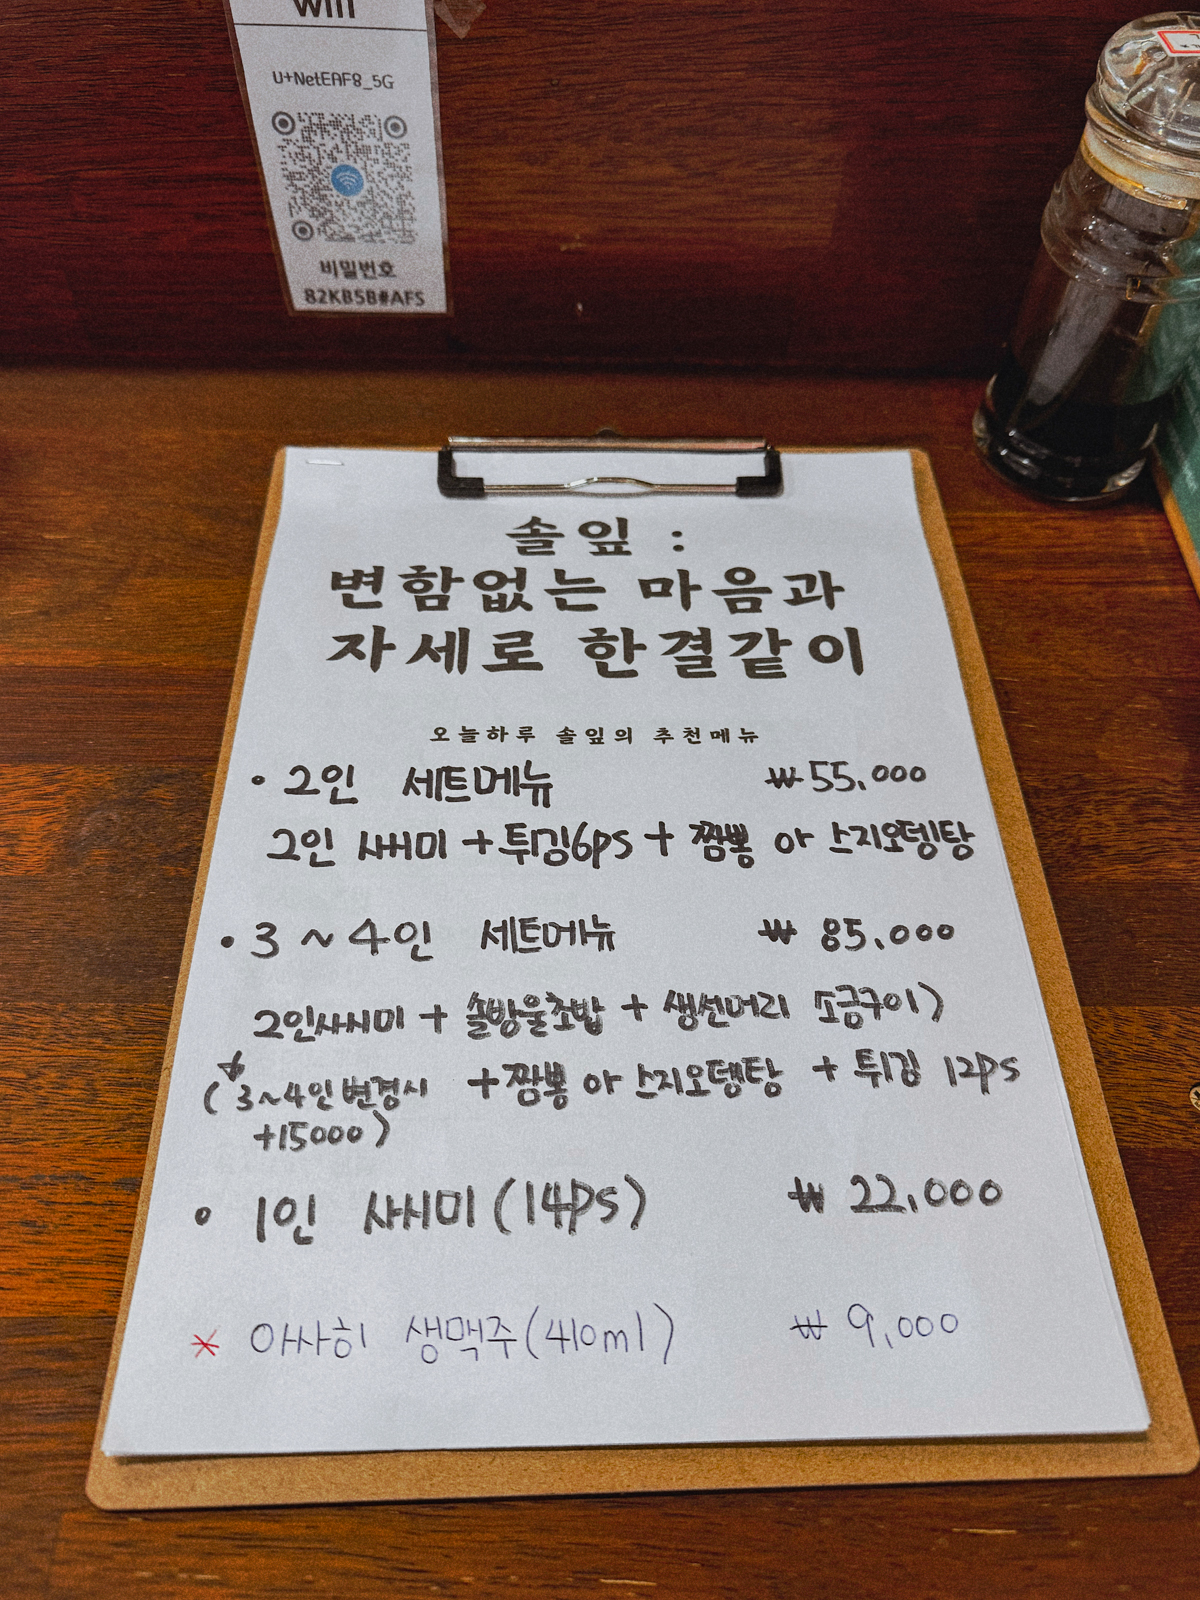 wifi
U+NetEAF8_5G
비밀번호
82KB5B#AFS
솔잎 :
변함없는 마음과
자세로 한결같이
오늘하루 솔잎의 추천메뉴
• 2인 세트메뉴 ₩55,000
2인 사시미 + 튀김6ps + 짬뽕 or 스지오뎅탕
• 3~4인 세트메뉴 ₩ 85,000
2인사시미 + 솔방울초밥 + 생선머리 소금구이)
(3~4인변경시 +짬뽕 or 스지오뎅탕 + 튀김 12ps
+15000)
• 1인 사시미(14ps) ₩ 22,000
* 아사히 생맥주(410ml) ₩ 9,000